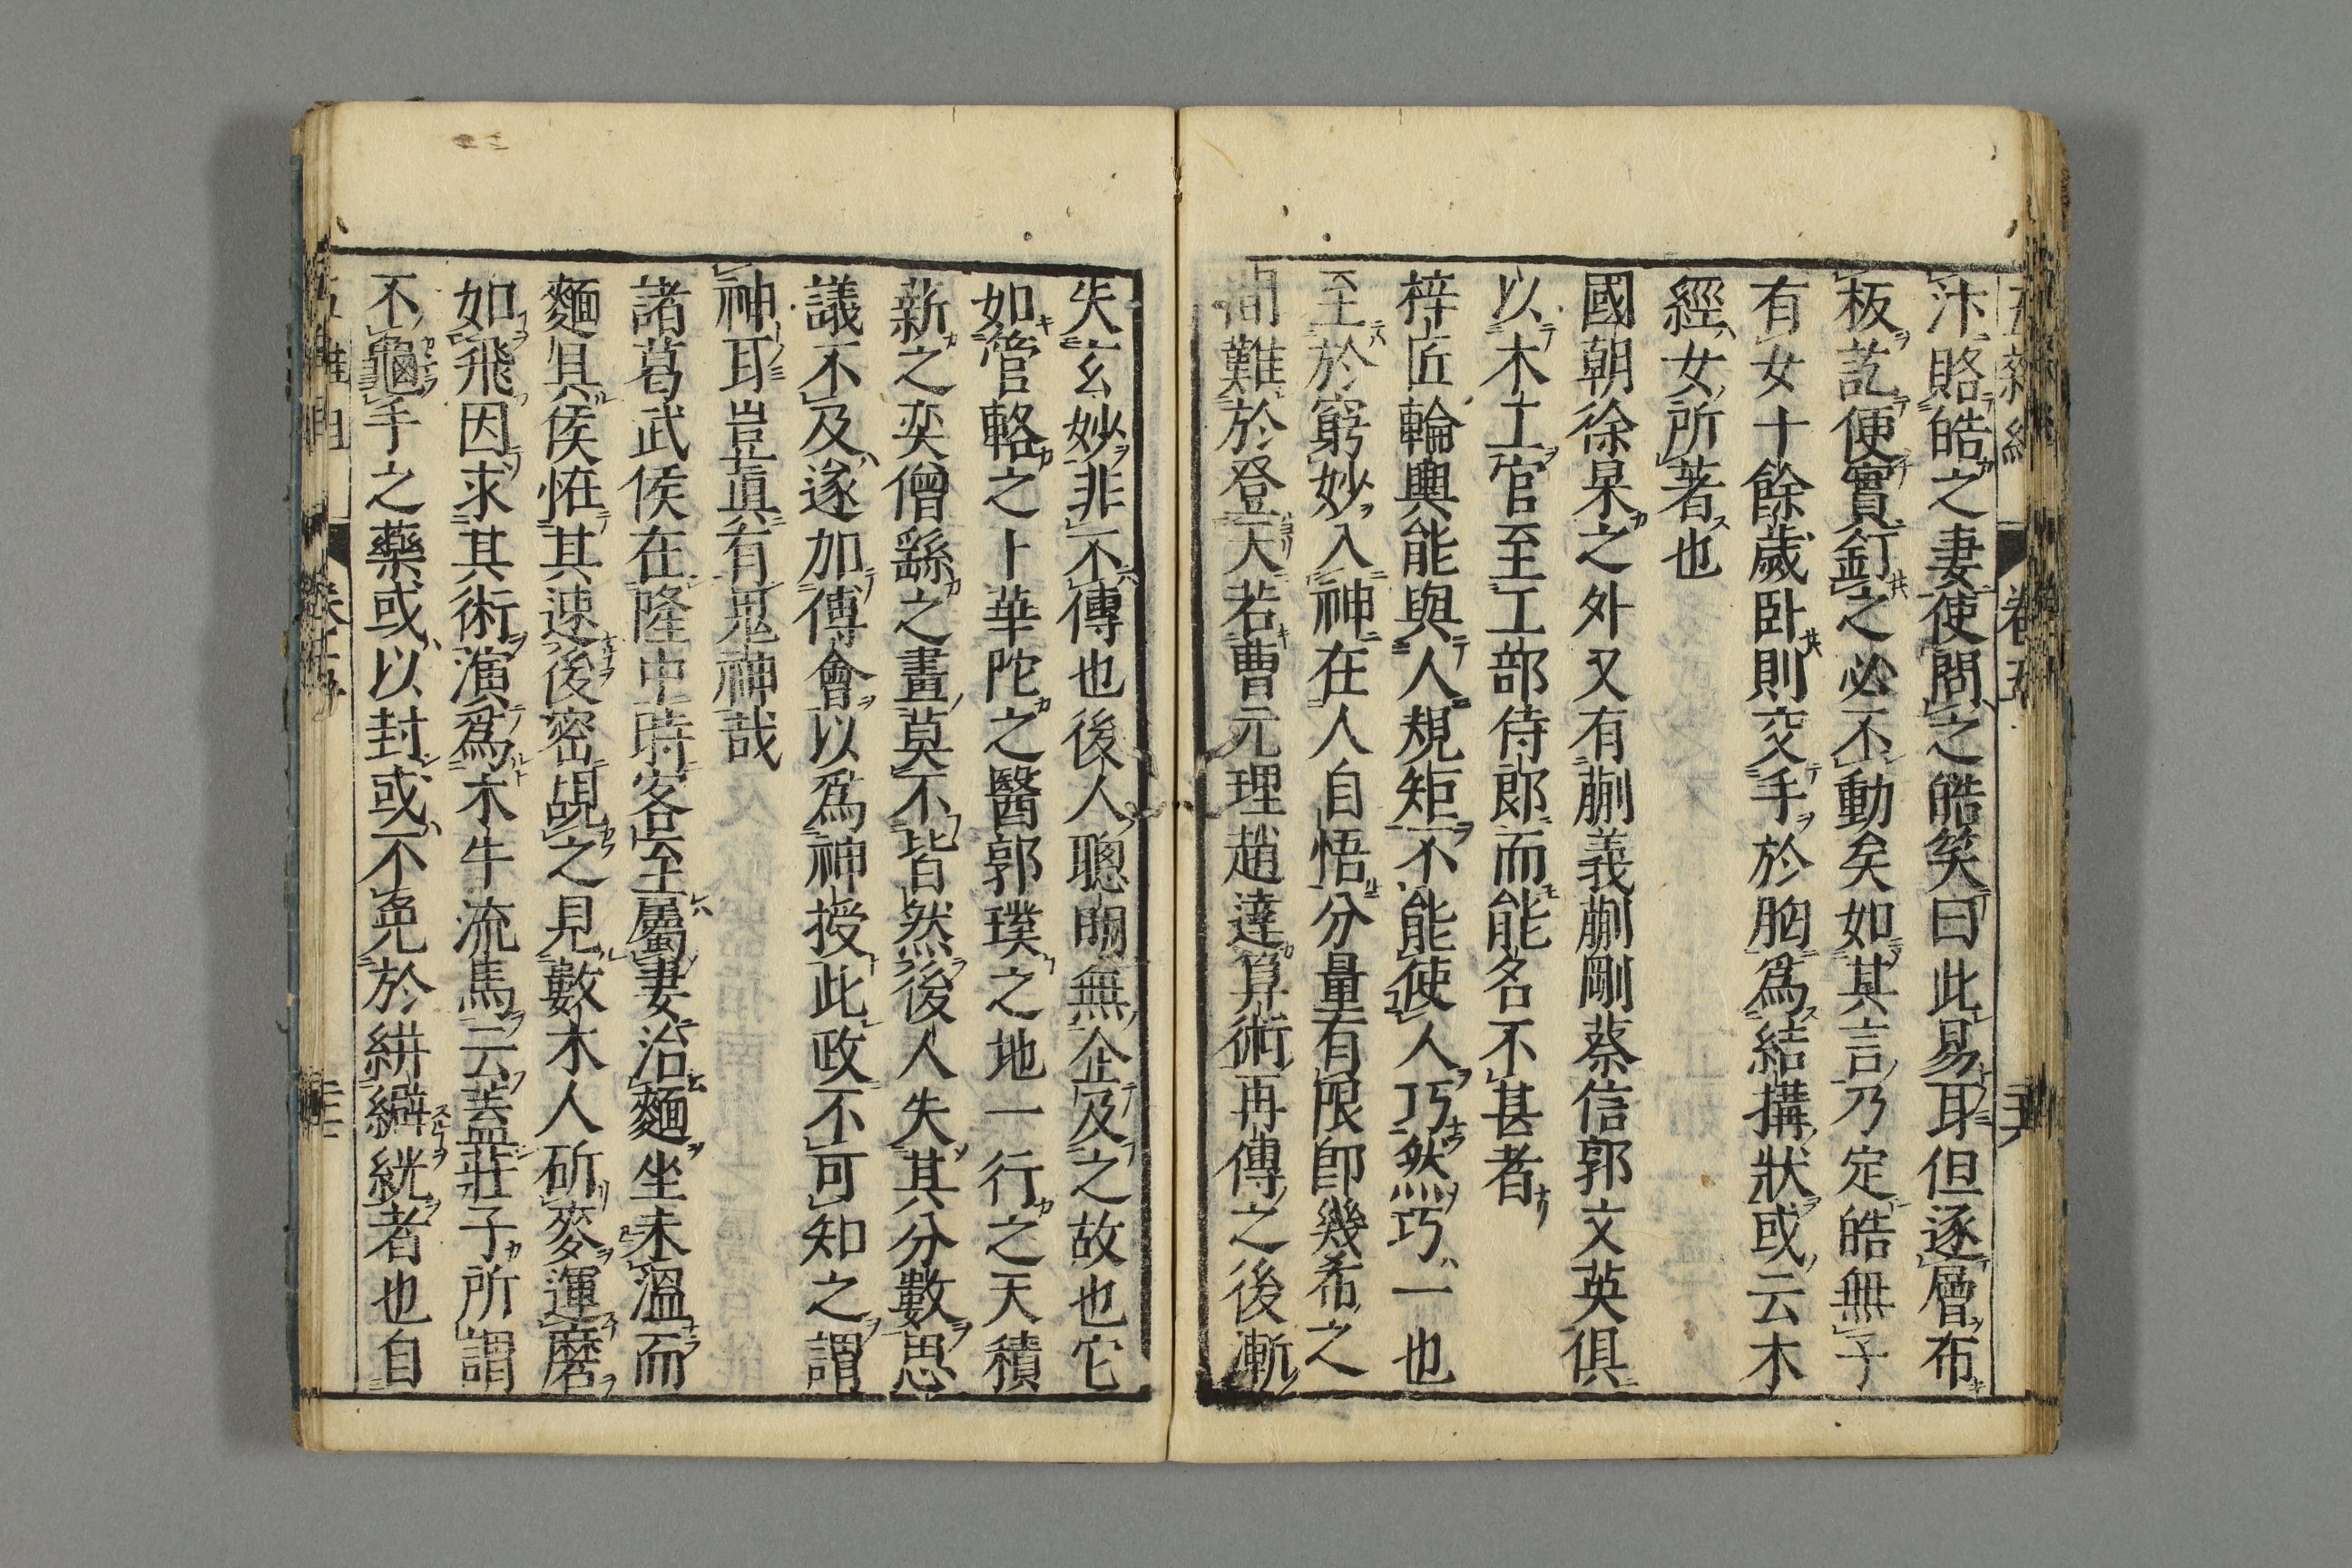 汴賂皓之妻使問之皓笑曰此易耳但逐層布
板訖便實釘之必不動矣如其言乃定皓無子
有女十餘歲卧則交手於胸爲結搆狀或云木
經女所著也
國朝徐杲之外又有蒯義蒯剛蔡信郭文英俱
以木工官至工部侍郎而能名不甚著
梓匠輪輿能與人規矩不能使人巧然巧一也
至於窮妙入神在人自悟分量有限卽幾希之
間難於登天若曹元理趙達算術再傳之後漸
失玄妙非不傳也後人聰明無企及之故也它
如管輅之卜華陀之醫郭璞之地一行之天積
薪之奕僧繇之畫莫不皆然後人失其分數思
議不及遂加傅會以爲神授此政不可知之謂
神耳豈眞有鬼神哉
諸葛武侯在隆中時客至屬妻治麵坐未溫而
麵具侯怪其速後密覘之見數木人斫麥運磨
如飛因求其術演爲木牛流馬云蓋莊子所謂
不龜手之藥或以封或不免於絣澼絖者也自